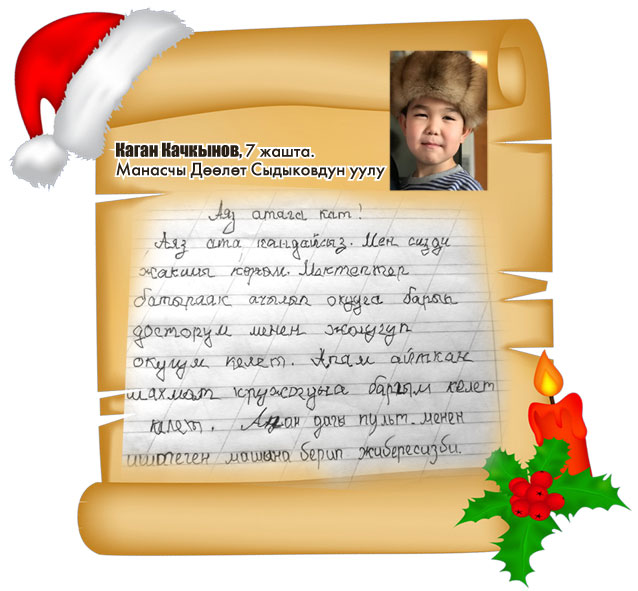 Каган Качкынов, 7 жашта.
Манасчы Дөөлөт Сыдыковдун уулу
Аяз атага кат!
Аяз ата кандайсыз. Мен сизди
жакшы көрөм. Мектептер
батыраак ачылып окууга барып
досторум менен жолугуп
окугум келет. Апам айткан
шахмат кружогуна баргым келет
келет. Анан дагы пульт менен
иштеген машина берип жибересизби.